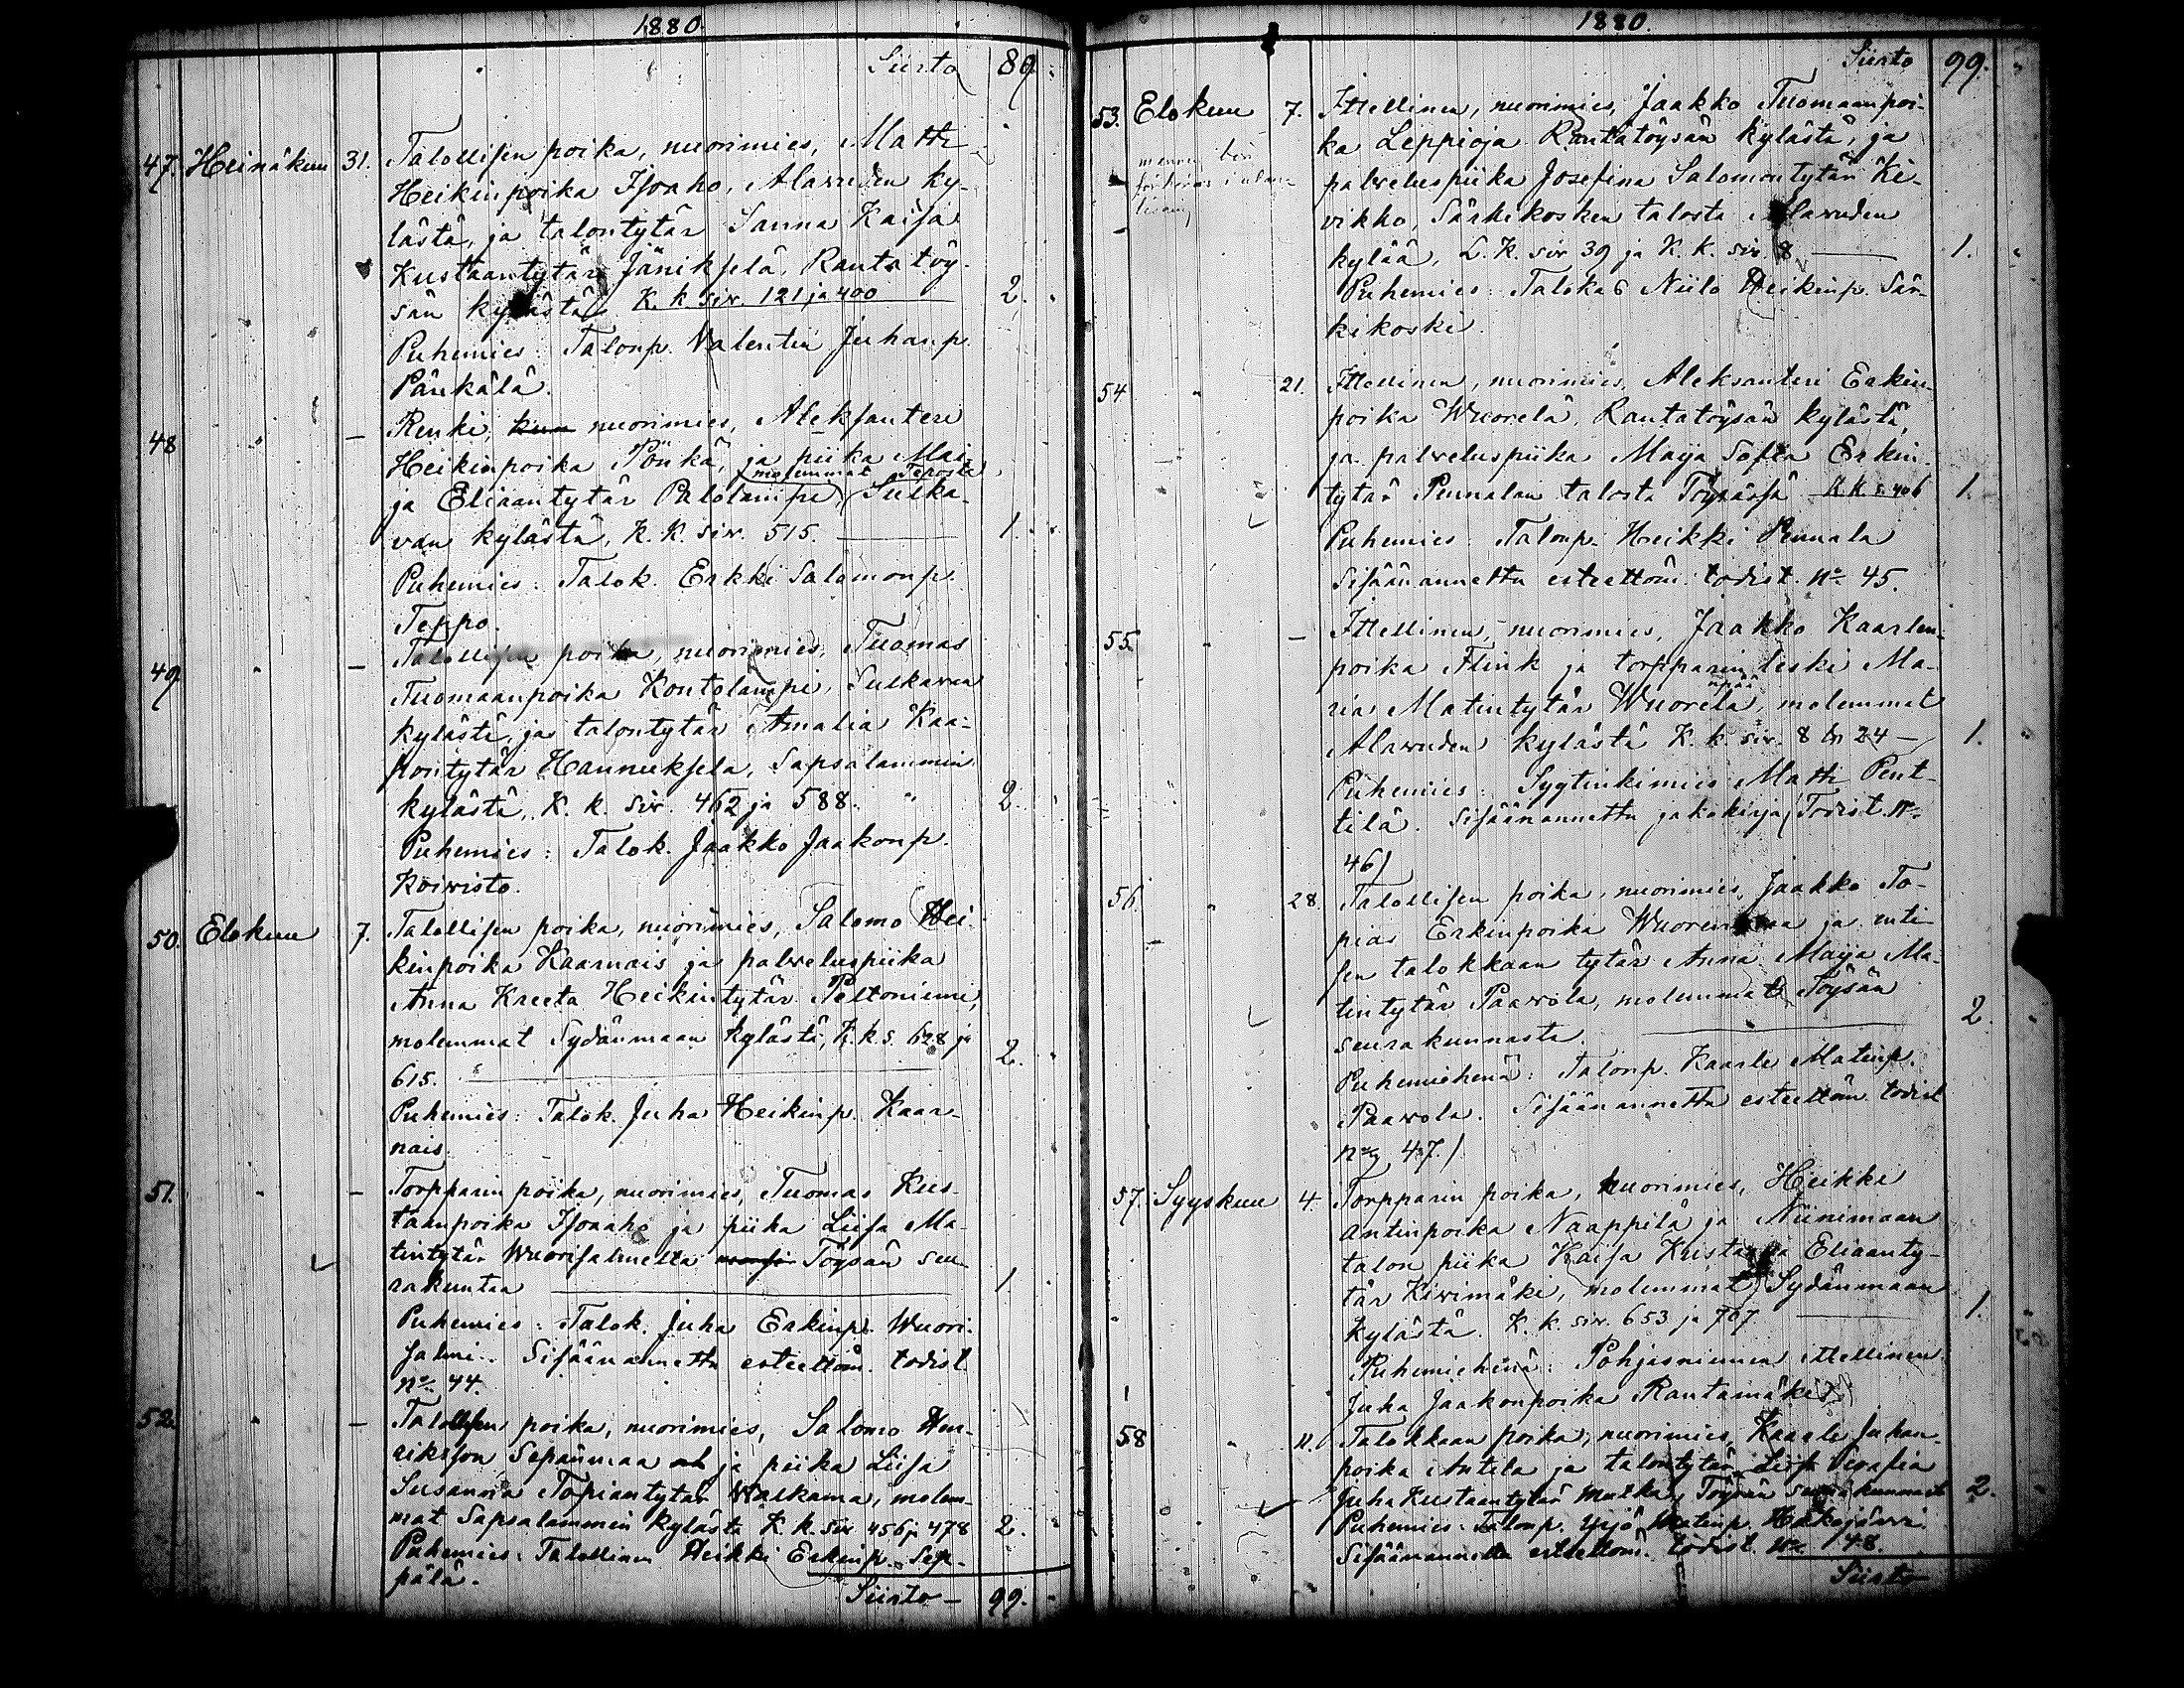 1880.
Siirto 89.
47. Heinäkuu 31. Talollisen poika, nuorimies, Matti
Heikinpoika Isoaho, Alavuden ky-
lästä, ja talontytär Sanna Kaisa
Kustaantytär Jänikselä, Rantatöy-
sän kylästä K. k. siv. 121 ja 400 2.
Puhemies: Talonp. Valentin Juhanp.
Pänkälä.
48 " — Renki, nuorimies, Aleksanteri
Heikinpoika Pönkä, ja piika Mai-
molemmat Teposta
ja Eliaantytär Palolampi, Sulka-
van kylästä, K. K. siv. 515. 1.
Puhemies: Talok. Erkki Salomonp.
Teppo.
49 " — Talollisen poika, nuorimies, Tuomas
Tuomaanpoika Kontolampi, Sulkavan
kylästä, ja talontytär Amalia Kaa-
pontytär Hannuksela, Sapsalammin
kylästä, K. k. siv. 462 ja 588. " 2.
Puhemies: Talok. Jaakko Jaakonp.
Koivisto.
50. Elokuu 7. Talollisen poika, nuorimies, Salomo Hei-
kinpoika Kaarnais ja palveluspiika
Anna Kreeta Heikintytär Peltoniemi,
molemmat Sydänmaan kylästä, K. k. s. 628 ja
615. 2.
Puhemies: Talok. Juha Heikinp. Kaar-
nais.
51. " — Torpparin poika, nuorimies, Tuomas Kus-
taanpoika Isoaho ja piika Liisa Ma-
tintytär Wuorisalmelta Töysän seu-
rakuntaa 1
Puhemies: Talok. Juha Erkinp. Wuori-
salmi. Sisäänannettu esteettöm. todist.
No. 44.
52. " — Talollisen poika, nuorimies, Salomo Hen-
riksson Sepänmaa ja piika Liisa
Susanna Topiantytär Walkama, molem-
mat Sapsalammin kylästä K. k. siv. 456 ja 478 2.
Puhemies: Talollinen Heikki Erkinp. Sep-
pälä.
Siirto — 99.
1880.
Siirto 99.
53. Elokuu 7. Ittellinen, nuorimies, Jaakko Tuomaanpoi-
ka Leppioja Rantatöysän kylästä, ja
palveluspiika Josefina Salomontytär Ki-
vikko, Särkikosken talosta Alavuden
kylää, L. K. siv 39 ja K. k. siv. 8 1.
Puhemies: Talokas Niilo Heikinp. Sär-
kikoski.
54 " 21. Ittellinen, nuorimies, Aleksanteri Erkin-
poika Wuorela, Rantatöysän kylästä,
ja palveluspiika Maija Sofia Erkin-
tytär Pennalan talosta Töysässä K k s. 406 1.
Puhemies: Talonp. Heikki Pennala
Sisäänannettu esteettöm. todist. No. 45.
55. " — Ittellinen, nuorimies, Jaakko Kaarlen-
poika Flink ja torpparin leski Ma-
ria Matintytär Wuorela, molemmat
Alavuden kylästä K. k. siv. 8 24 — 1.
Puhemies: Syytinkimies Matti Pent-
tilä. Sisäänannettu jakokirja (Todist. No.
46)
56. " 28. Talollisen poika, nuorimies, Jaakko To-
pias Erkinpoika ja enti-
sen talokkaan tytär Anna Maija Ma-
tintytär Paavola, molemmat Töysän
seurakunnasta. 2
Puhemiehenä: Talonp. Kaarle Matinp.
Paavola. Sisäänannettu esteettöm. todist
No 47.)
57. Syyskuu 4. Torpparin poika, nuorimies, Heikki
Antinpoika Naappilä ja Niinimaan
talon piika Kaisa Kustaava Eliaanty-
tär Kivimäki, molemmat Sydänmaan
kylästä. K. k. siv. 653 ja 707 1.
Puhemiehenä: Pohjasniemen ittellinen
Juha Jaakonpoika Rantamäki
58 " 11. Talokkaan poika, nuorimies, Kaarle Juhan-
poika Antila ja talontytär Serafia
Juha Kustaantytär Mutka, Töysän seurakunnasta 2.
Puhemies: Talonp. Yrjö Matinp. Hakojärvi.
Sisäänannettu esteettöm. todist. No. 48.
Siirto